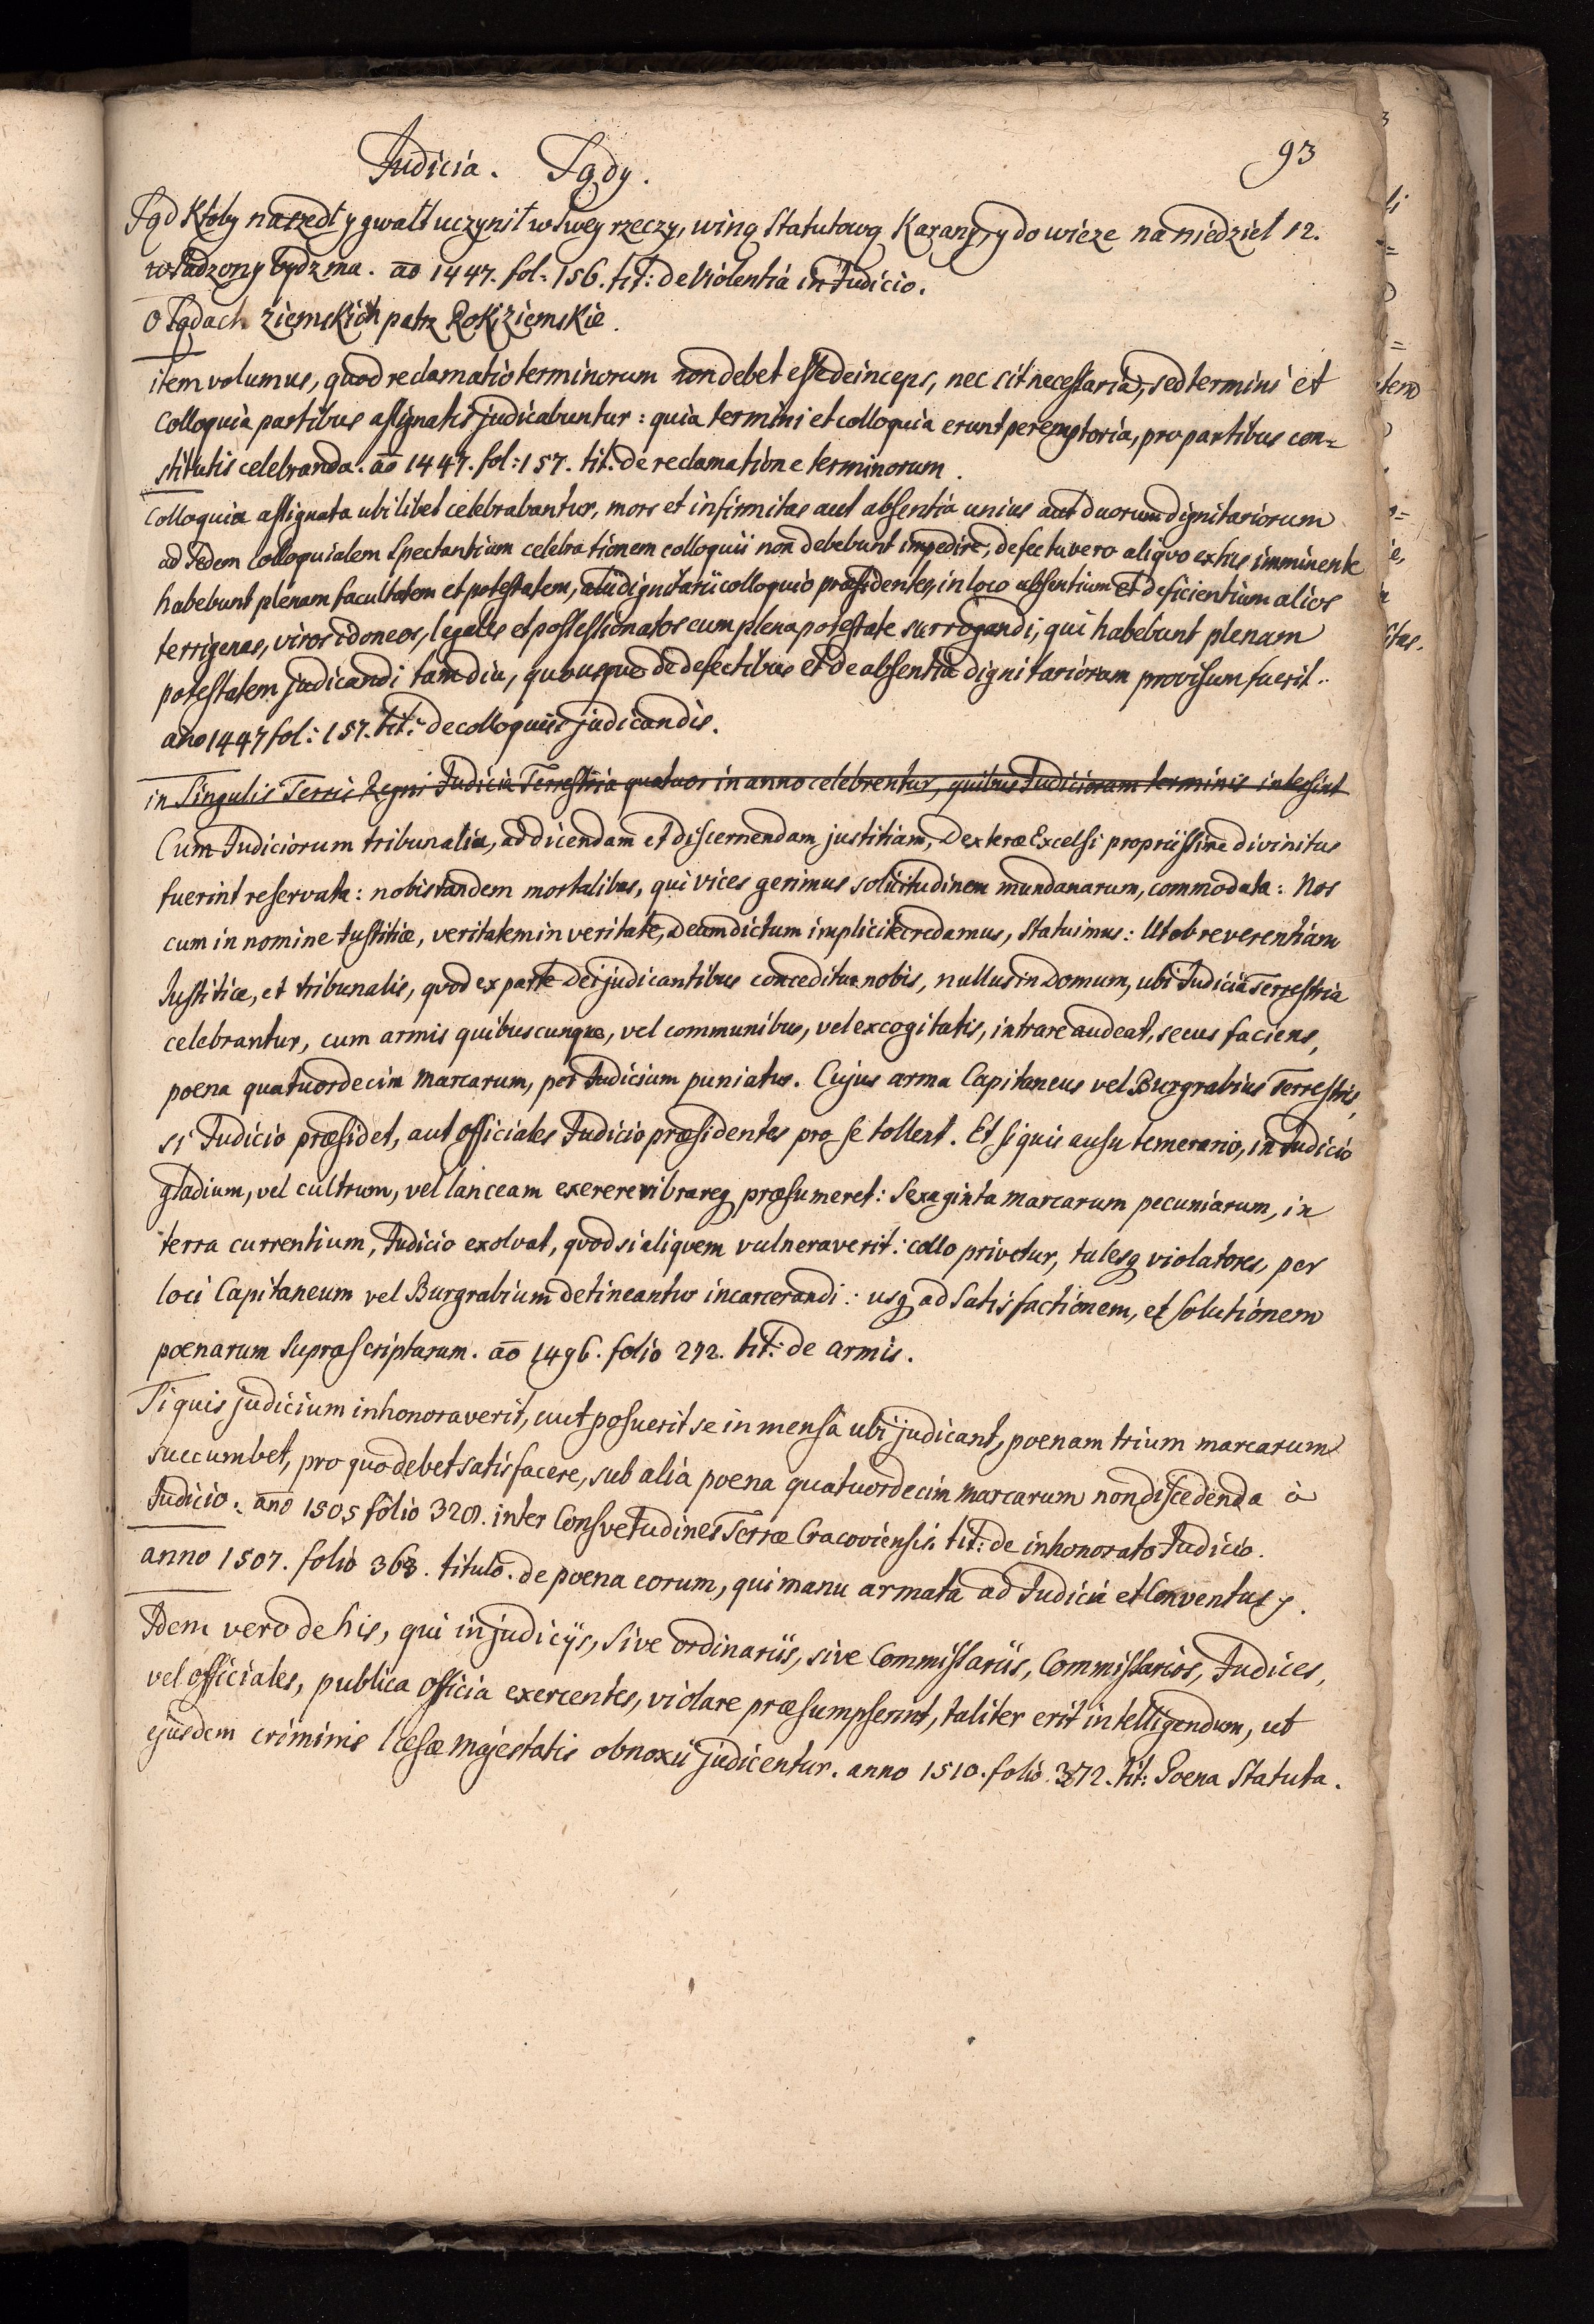 Judicia. Sądy.
93
Sąd ktoby naszedł y gwałt uczynił w swey rzeczy, winą Statutową Karany, y do wieze na niedziel 12.
wsadzony bydz ma. ao 1447. fol: 156. tit: de Violentia in Judicio.
O Sądach Ziemskich patrz Roki Ziemskie.
item volumus, quod reclamatio terminorum non debet esse deinceps, nec sit necessaria, sed termini et
colloquia partibus assignatis judicabuntur: quia termini et colloquia erunt peremptoria, pro partibus con=
stitutis celebranda. ao 1447. fol: 157. tit: de reclamatione terminorum.
Colloquia assignata ubilibet celebrabantur, mors et infirmitas aut absentia unius aut duorum dignitariorum
ad sedem colloquialem spectantium celebrationem colloquii non debebunt impedire, defectu vero aliquo ex his imminente
habebunt plenam facultatem et potestatem, alii dignitarii colloquio præsidentes, in loco absentium et deficientium alios
terrigenas, viros idoneos, legales et possessionatos cum plena potestate surrogandi, qui habebunt plenam
potestatem judicandi tamdiu, quousque de defectibus et de absentia dignitariorum provisum fuerit.
ano 1447 fol: 157. tit: de colloquiis judicandis.
in Singulis Terris Regni Judicia Terrestria quatuor in anno celebrentur, quibus Judiciorum terminis intersint
Cum Judiciorum tribunalia, ad dicendam et discernendam justitiam, Dexteræ Excelsi propriissime divinitus
fuerint reservata: nobis tandem mortalibus, qui vices gerimus solicitudinem mundanarum, commodata: Nos
cum in nomine Justitiæ, veritatem in veritate, Deum dictum implicite credamus, Statuimus: Ut ob reverentiam
Justitiæ, et tribunalis, quod ex parte Dei judicantibus conceditur nobis, nullus in Domum, ubi Judicia Terrestria
celebrantur, cum armis quibuscunque, vel communibus, vel excogitatis, intrare audeat, secus faciens,
poena quatuordecim marcarum, per Judicium puniatur. Cujus arma Capitaneus vel Burgrabius Terrestris,
si Judicio præsidet, aut officiales Judicio præsidentes pro se tollent. Et si quis ausu temerario, in Judicio
gladium, vel cultrum, vel lanceam exerere vibrareq præsumeret: Sexaginta marcarum pecuniarum, in
terra currentium, Judicio exolvat, quod si aliquem vulneraverit: collo privetur, talesq violatores, per
loci Capitaneum vel Burgrabium detineantur incarcerandi: usq ad Satisfactionem, et Solutionem
poenarum suprascriptarum. ao 1496. folio 272. tit: de armis.
Si quis judicium inhonoraverit, aut posuerit se in mensa ubi judicant, poenam trium marcarum
succumbet, pro quo debet satisfacere, sub alia poena quatuordecim marcarum non discedenda à
Judicio. ano 1505 folio 328. inter Consvetudines Terræ Cracoviensis tit: de inhonorato Judicio.
anno 1507. folio 363. titulo. de poena eorum, qui manu armata ad Judicia et Conventus.
Idem vero de his, qui in judicijs, Sive ordinariis, sive Commissariis, Commissarios, Judices,
vel officiales, publica officia exercentes, violare præsumpserint, taliter erit intelligendum, ut
ejusdem criminis læsæ Majestatis obnoxii judicentur. anno 1510. folio. 372. tit: Poena Statuta.